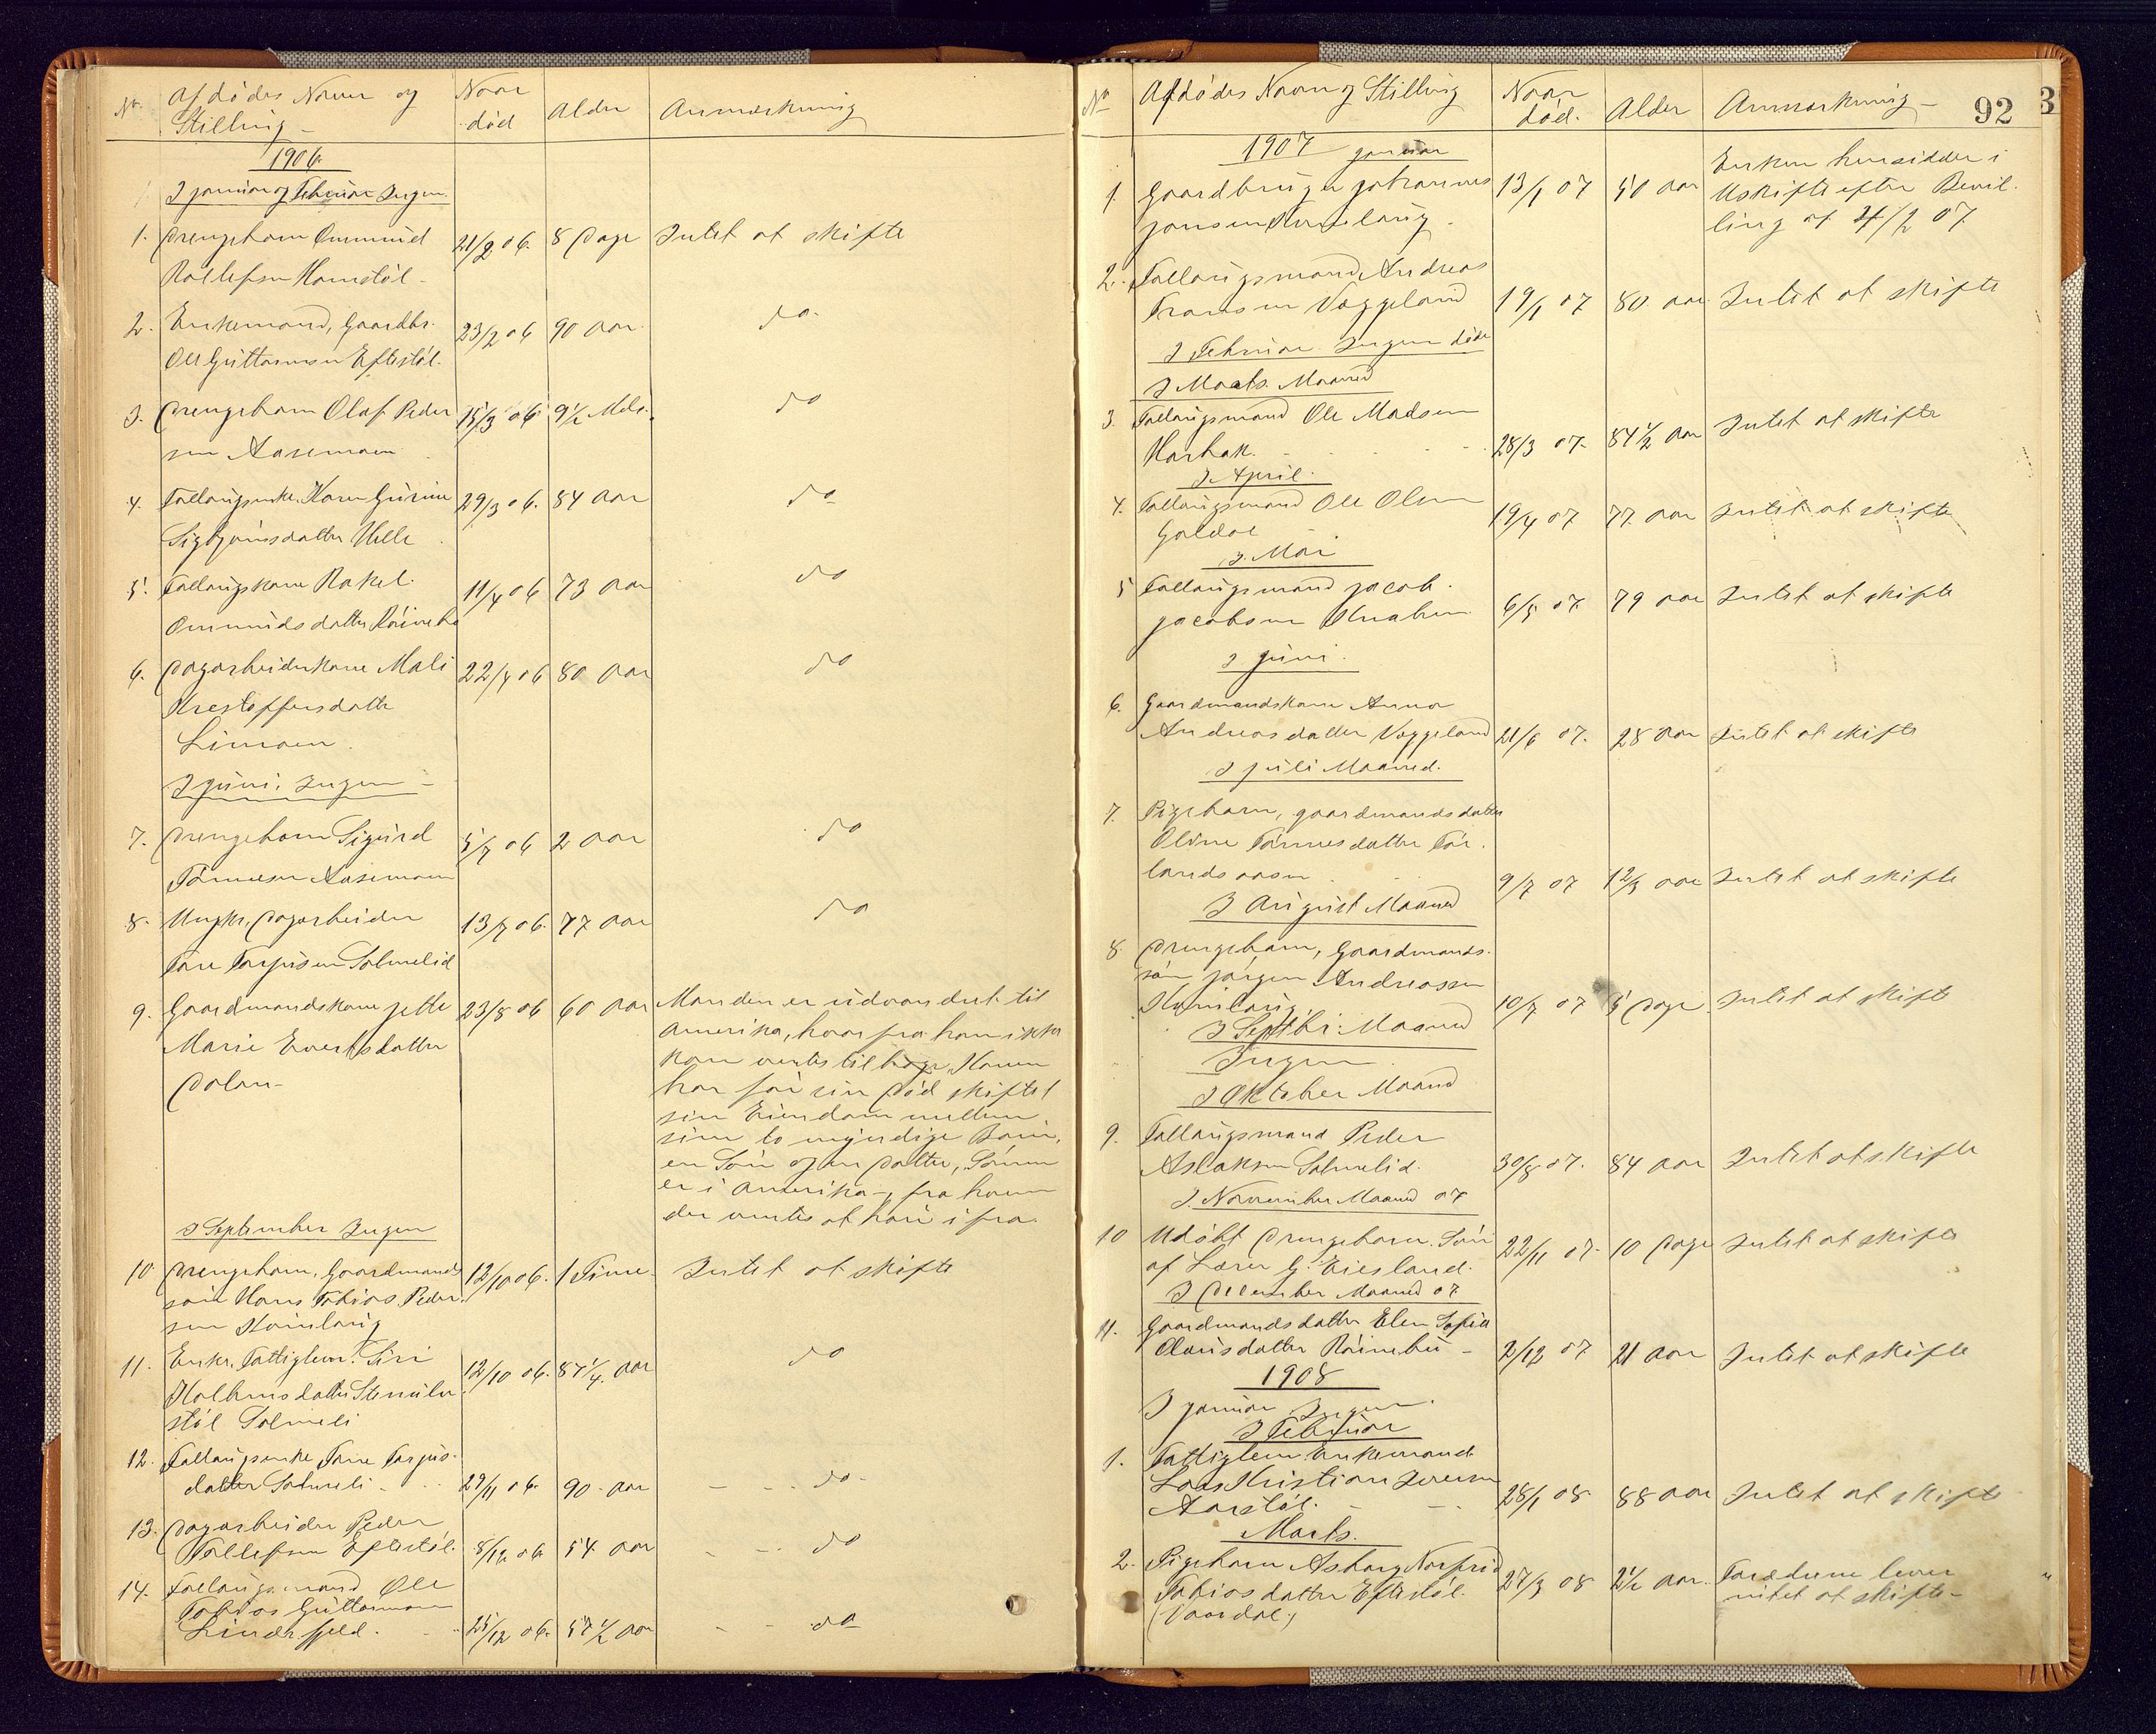 No. Afdødes Navn og
Stilling –
Naar
død
Alder
Anmærkning
1906.
I januar og Februar Ingen
1. Drengebarn Ommund 21/2 06. 8 Dage Intet at skifte
Rollefsen Homstøl –
2. Enkemand, Gaardbr. 23/2 06 90 Aar. do.
Ole Guttormsen Eftestøl.
3. Drengebarn Olaf Peder 15/3 06 9½ Mdr. do
sen Aasemoen
4. Follaugsenke Karen Gurine 29/3 06. 84 Aar do
Sigbjørnsdatter Helle
5. Follaugskone Rakel 11/4 06 73 Aar do
Ommundsdatter Røinebo
6. Dagarbeiderkone Mali 22/4 06 80 Aar do
Krestoffersdatter
Limoen.
I juni, Ingen –
7. Drengebarn Sigurd 5/7 06 2 Aar do
Tønnesen Aasemoen
8. Ungkr. Dagarbeider 13/7 06. 77 Aar do
Tore Torjusen Solmelid
9. Gaardmandskone jette 23/8 06 60 Aar Manden er udvandret til
Marie Evertsdatter
Dolen –
Amerika, hvorfra han ikke
kan ventes tilbage. Konen
har før sin Død skiftet
sin Eiendom mellem
sine to myndige Børn,
en Søn og en Datter, Sønnen
er i Amerika –, fra hvem
der ventes at høre ifra.
I September Ingen
10. Drengebarn, Gaardmands 12/10 06. 1 Time. Intet at skifte
søn Hans Tobias Peder
sen Kvinlaug
11. Enke. Fattiglem. Siri 12/10 06. 87¼. Aar do
Kolbensdatter
støl Solmeli
12. Follaugsenke Tone Torjus-
datter Solmeli – 29/11 06. 90 Aar – – do –
13. Dagarbeider Peder
Tollefsen Eftestøl. 8/12 06 54 Aar – – do
14. Follaugsmand Ole
Tobias Guttormsen
Linderfjeld. 25/12 06. 57½ Aar – – do
No Afdødes Navn og Stilling
Naar
død.
Alder
Anmærkning –
92
3
1907 januar
1. Gaardbruger johannes 13/1 07 50 Aar Enken hensidder i
jonsen Kvinlaug. Uskifte efter Bevil-
ling af 4/2 07
2. Follaugsmand Andreas
Fransen Væggeland 19/1 07 80. Aar. Intet at skifte
I Februar Ingen døde
I Marts. Maaned
3. Follaugsmand Ole Madsen
Harbak. 28/3 07. 84½ Aar Intet at skifte
I April.
4. Follaugsmand Ole Olsen 19/4 07 77 Aar Intet at skifte
Galdal
I. Mai
5 Follaugsmand jacob 6/5 07. 79 Aar Intet at skifte
jacobsen Knaben
I juni.
6. Gaardmandskone Anna
Andreasdatter Væggeland 21/6 07. 28 Aar Intet at skifte
I juli Maaned.
7. Pigebarn, gaardmandsdatter
Oline Tønnesdatter Før-
landsaasen 9/7 07 1 2/3 Aar Intet at skifte
I August Maaned
8. Drengebarn, Gaardmands-
søn jørgen Andreassen
Kvinlaug. 10/7 07 5 Dage Intet at skifte
I Septbr. Maaned
Ingen
I Oktober Maaned
9. Follaugsmand Peder
Aslaksen Solmelid. 30/8 07. 84 Aar Intet at skifte
I. November Maaned 07
10 Udøbt Drengebarn. Søn 22/11 07. 10 Dage Intet at skifte
af Lærer G. Eiesland.
I December Maaned 07
11. Gaardmandsdatter Elen Sofie
Olausdatter Røinebu – 2/12 07 21 Aar Intet at skifte
1908
I januar Ingen.
I Februar
1. Fattiglem Enkemand
Lars Kristian Iversen
Aarstøl. – 28/1 08 88 Aar Intet at skifte
Marts.
2. Pigebarn Asborg Norfrid
Tobiasdatter Eftestøl. 27/3 08 2½ Aar. Forældrene lever
(Vaardal) intet at skifte –